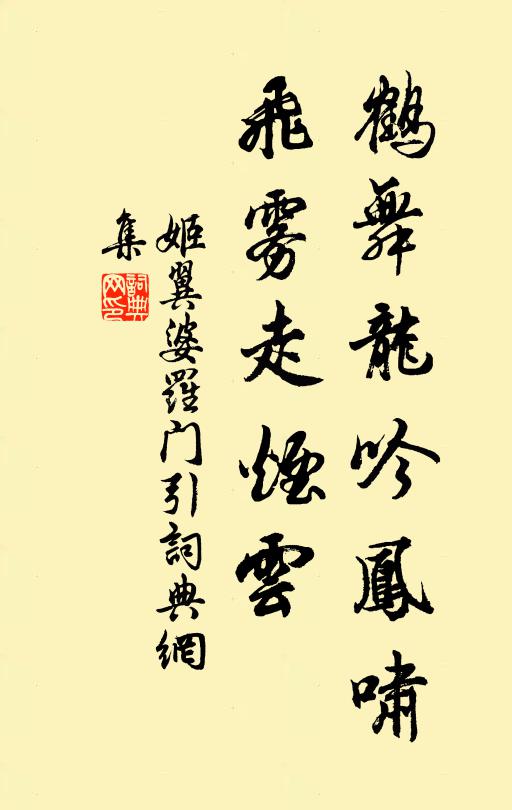 鶴舞龍吟鳳嘯
飛霧走煙雲
姬翼婆羅门引詞典網
集
詞典
网印